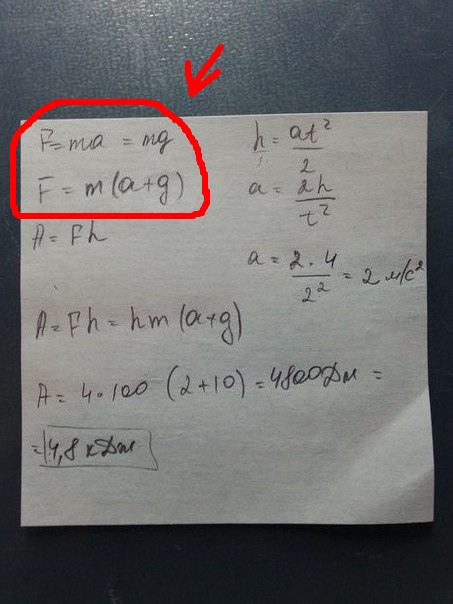 F = ma = mg
F = m(a+g)
A = Fh
h = at²/2
a = 2h/t²
a = 2·4/2² = 2 м/с²
A = Fh = hm(a+g)
A = 4·100 (2+10) = 4800Дж =
= 4,8 кДж